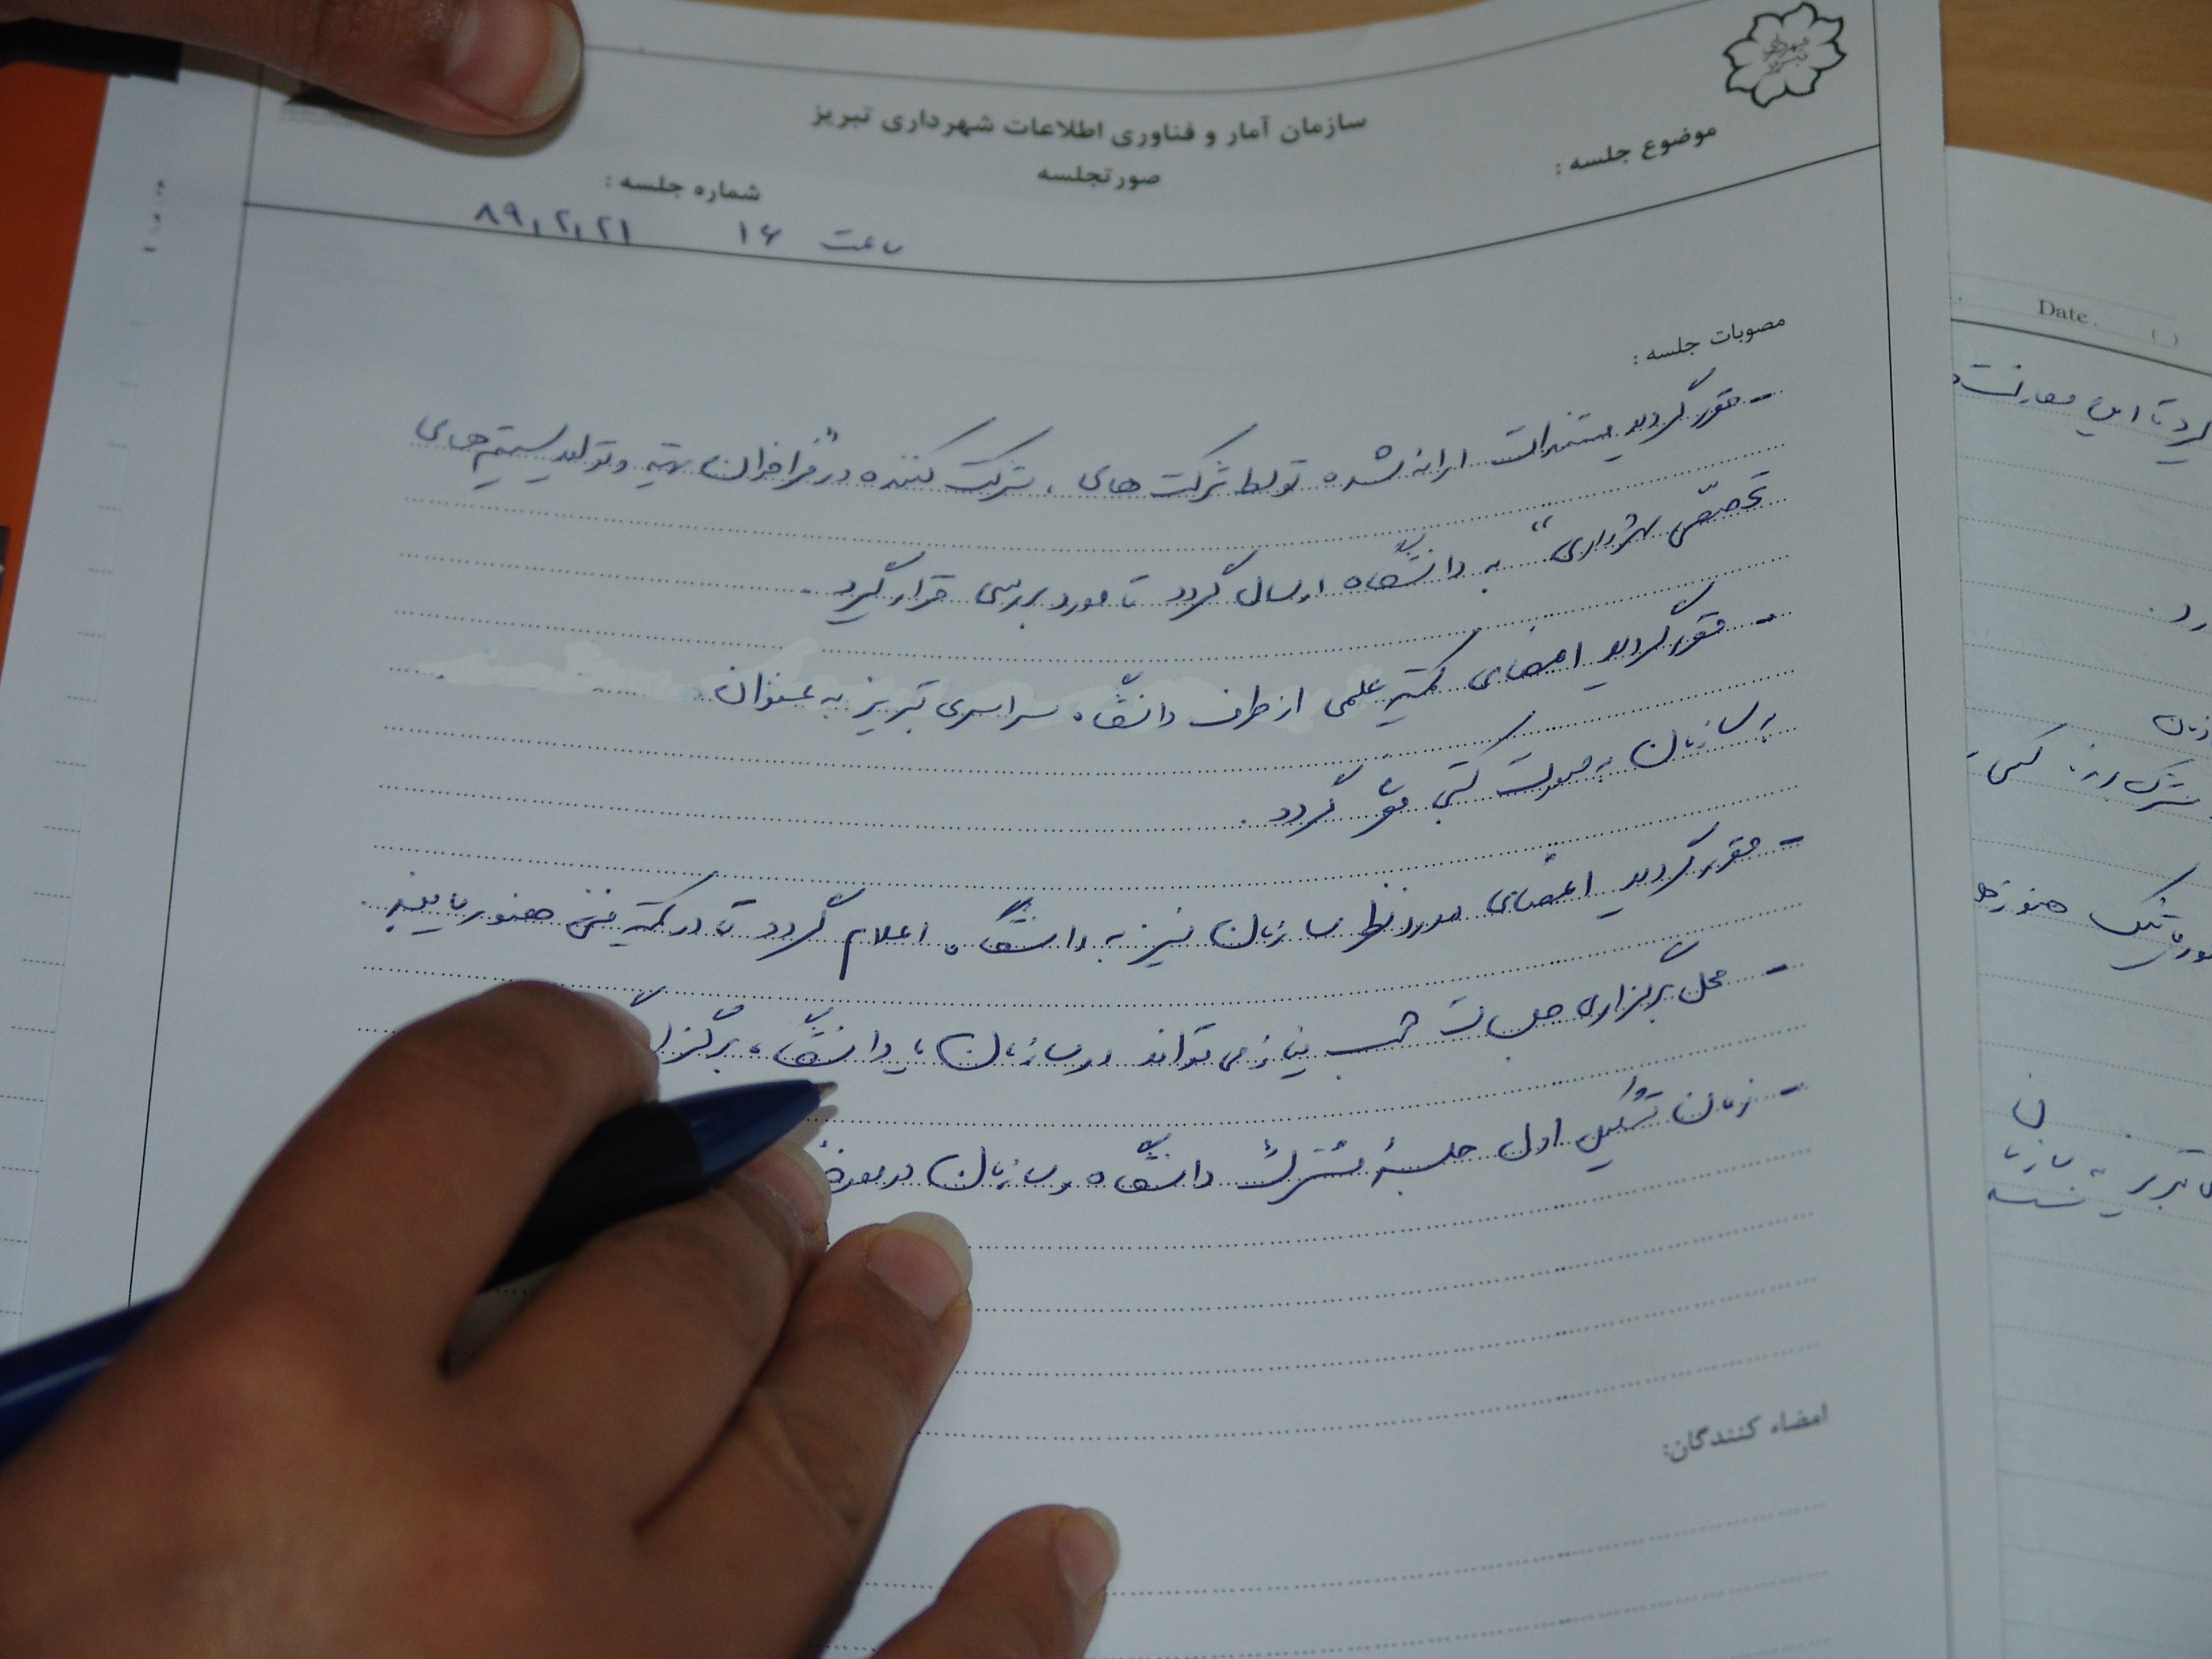 شهرداری تبریز
سازمان آمار و فناوری اطلاعات شهرداری تبریز
صورتجلسه
موضوع جلسه :
شماره جلسه :
ساعت ۱۶ ۸۹,۲,۲۱
مصوبات جلسه :
- مقرر گردید مستندات ارائه شده توسط شرکت های ، شرکت کننده در "فراخوان تهیه و تولید سیستم های
تخصصی شهرداری" به دانشگاه ارسال گردد تا مورد بررسی قرار گیرد .
- مقرر گردید اعضای کمیته علمی از طرف دانشگاه سراسری تبریز به عنوان
به سازمان به صورت کتبی گردد .
- مقرر گردید اعضای مورد نظر سازمان نیز به دانشگاه اعلام گردد تا در کمیته فنی حضور یابند .
- محل برگزاری جلسات حسب نیاز می تواند در سازمان یا دانشگاه برگزا
- زمان تشکیل اول جلسهٔ مشترک دانشگاه و سازمان در مورخ
امضاء کنندگان:
Date. ( )
گردید تا این معاونت